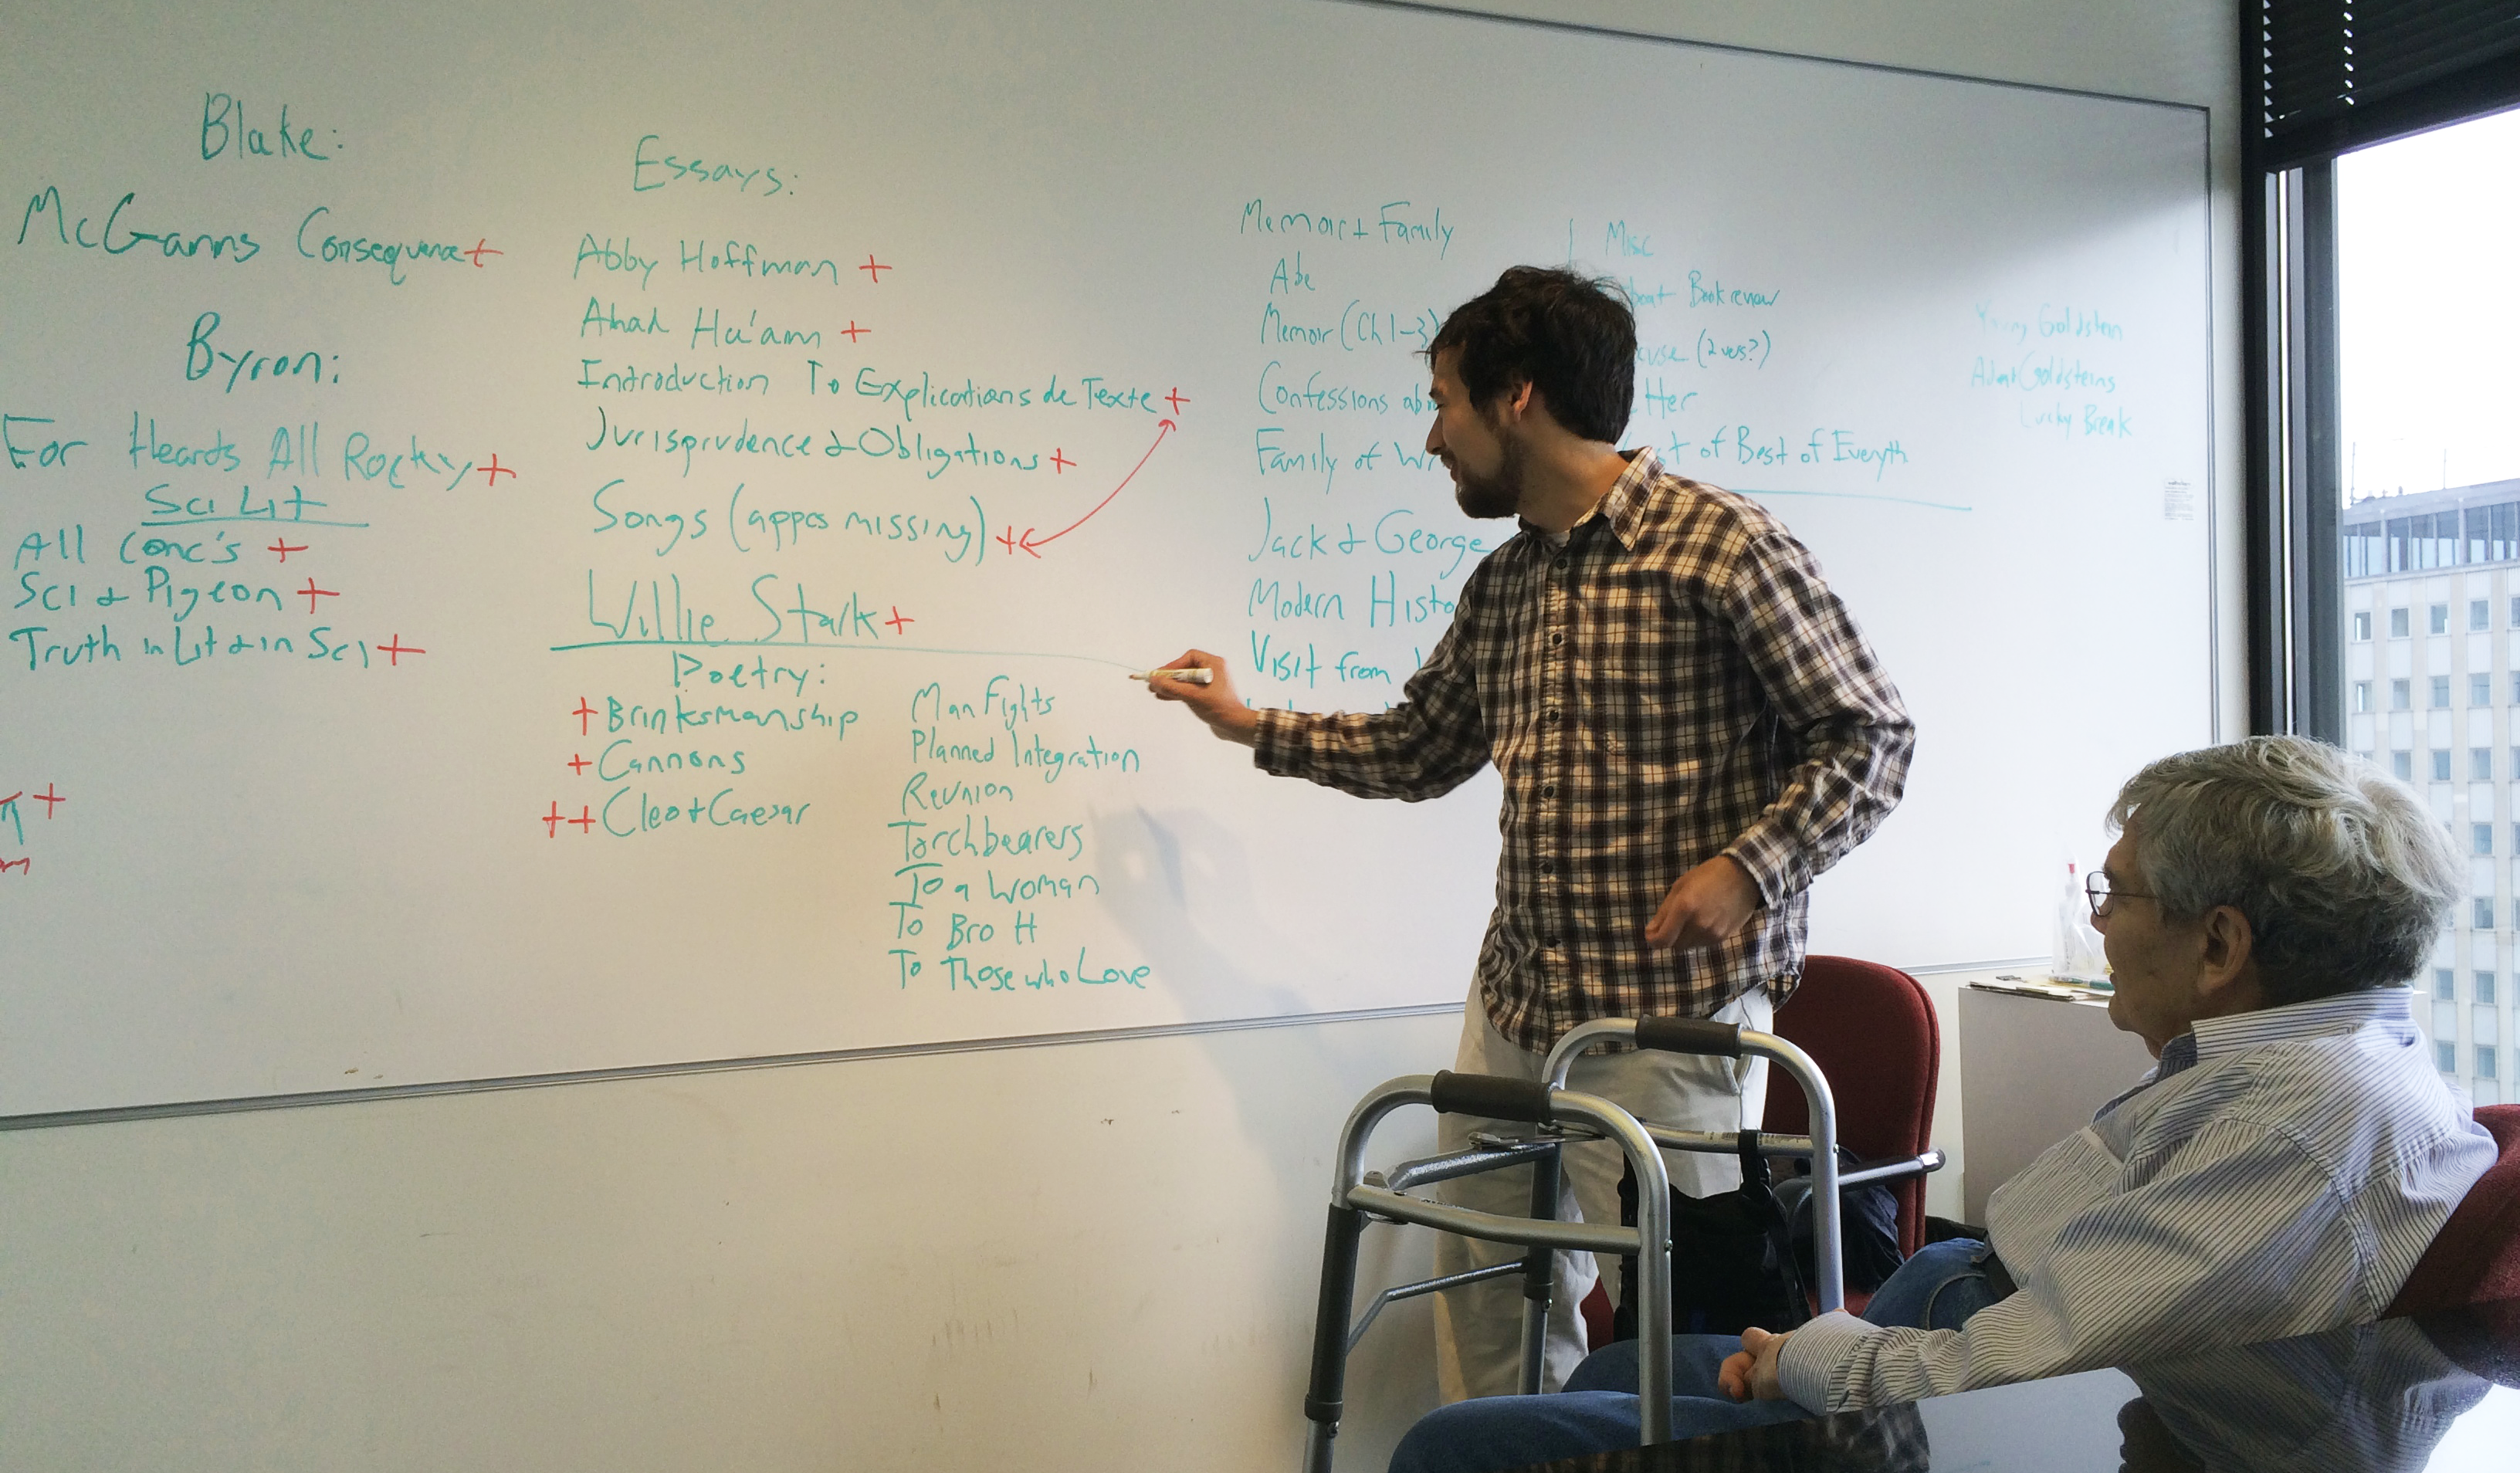 Blake:
McGanns Consequence+
Byron:
For Hearts All Rocky+
Sci Lit
All Conc's +
Sci & Pigeon +
Truth in Lit & in Sci +
+
Essays:
Abby Hoffman +
Ahad Ha'am +
Introduction To Explications de Texte +
Jurisprudence & Obligations +
Songs (appcs missing) +
Willie Stark +
Poetry:
+ Brinksmanship
+ Cannons
++ Cleo + Caesar
Man Fights
Planned Integration
Reunion
Torchbearers
To a Woman
To Bro H
To Those who Love
Memoir + Family
Abe
Memoir (Ch 1-3)
Confessions
Family of
Jack & George
Modern
Visit from
Misc
Book review
(2 vers?)
of Best of Everyth
Young Goldstein
Goldsteins
Lucky Break